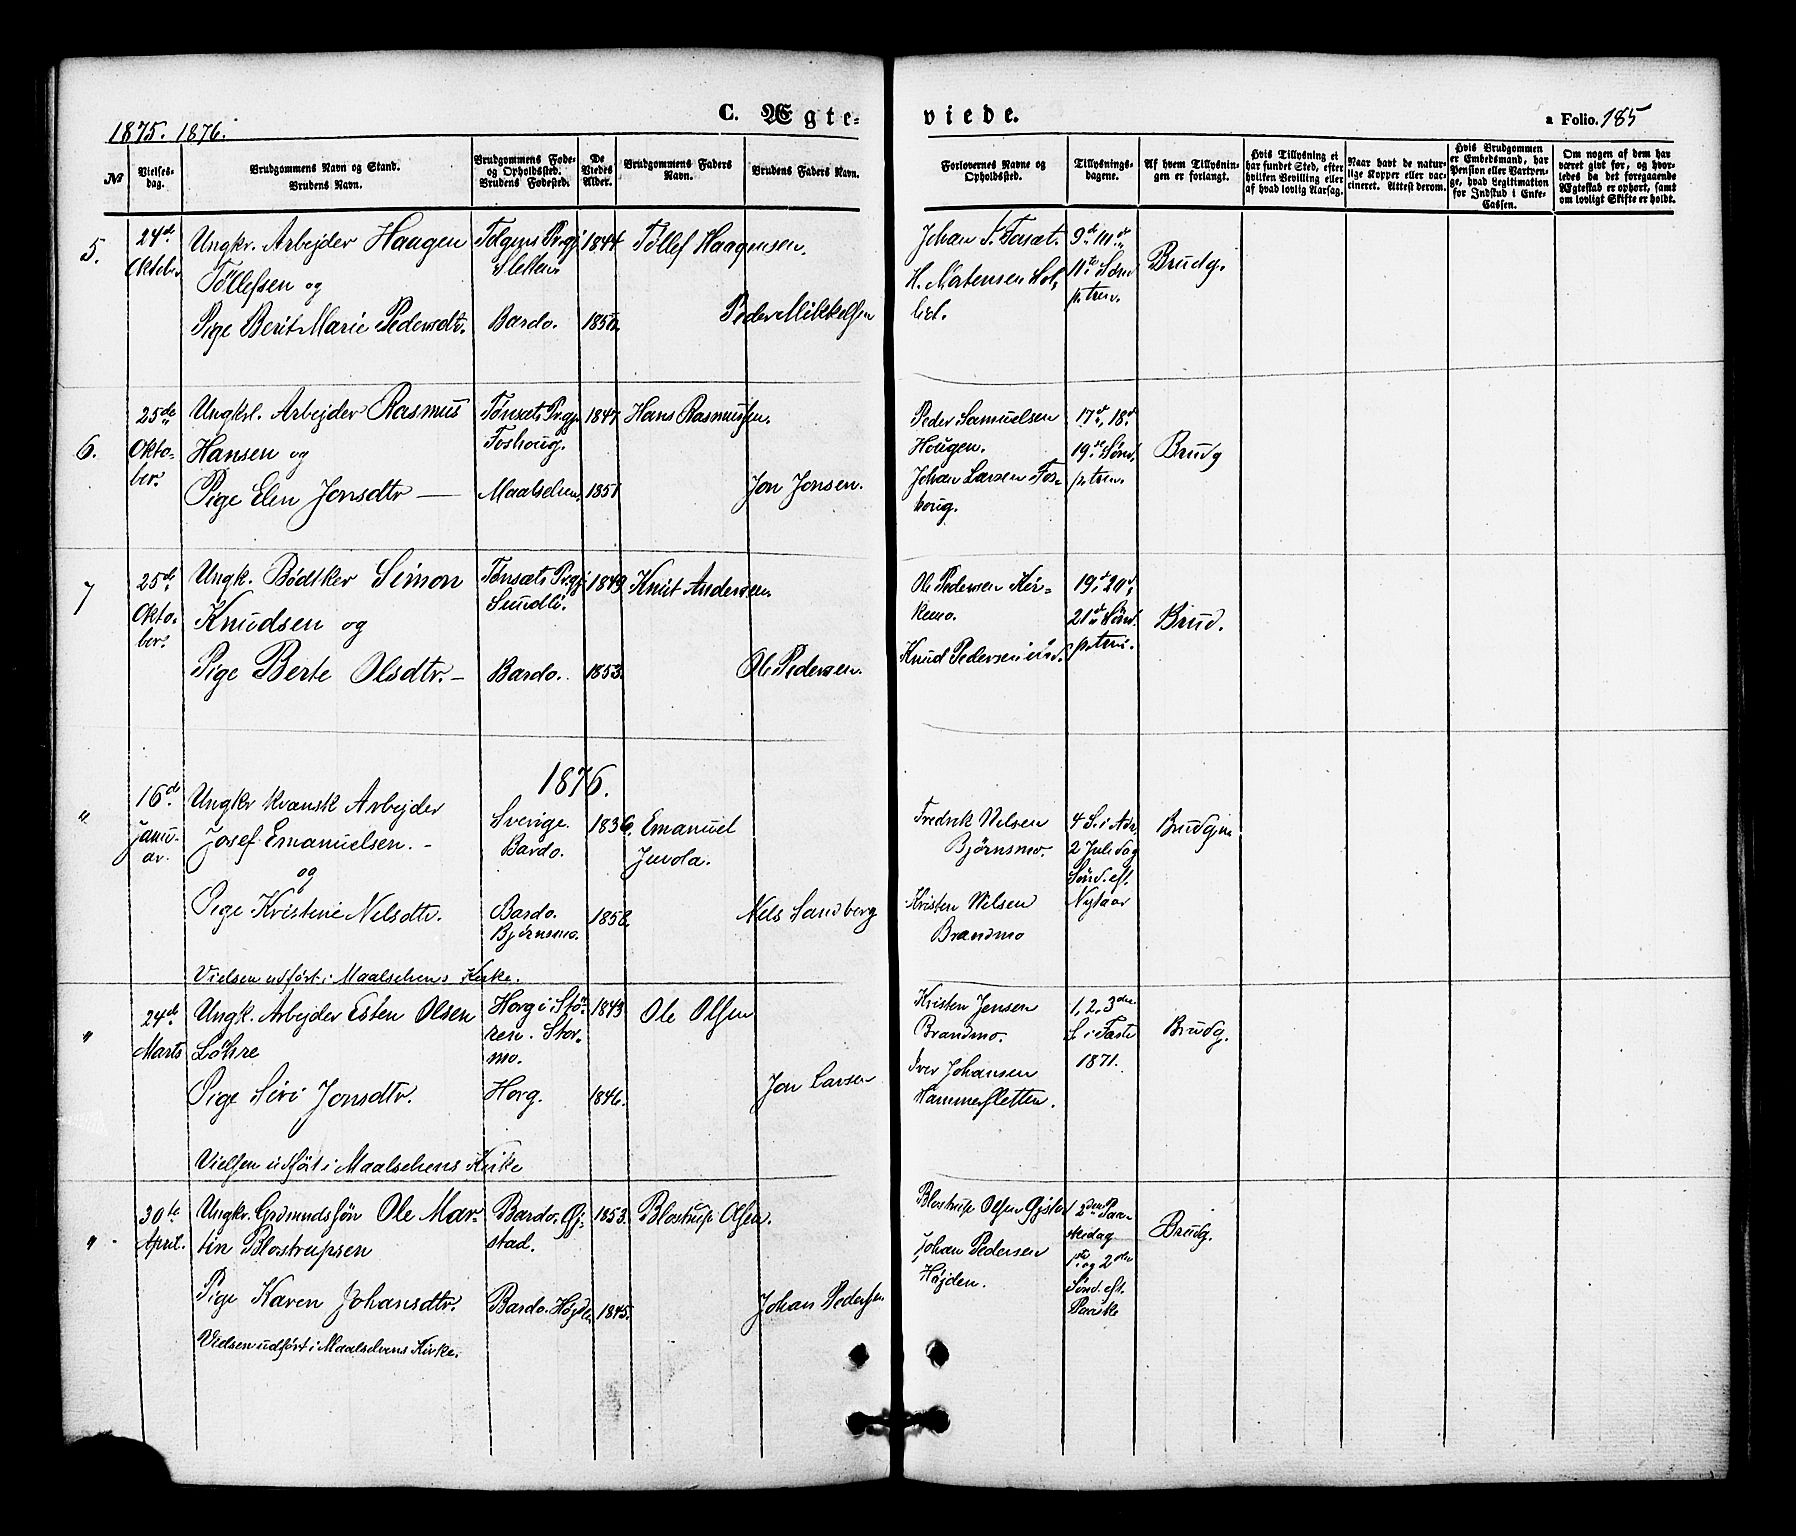 1875. 1876.
C. Ægteviede.
a Folio. 185
No
Vielses-dag.
Brudgommens Navn og Stand.
Brudens Navn.
Brudgommens Føde- og Opholdssted.
Brudens Fødested.
De Viedes Alder.
Brudgommens Faders Navn.
Brudens Faders Navn.
Forlovernes Navne og Opholdssted.
Tillysnings-dagene.
Af hvem Tillysningen er forlangt.
Hvis Tillysning ei har fundet Sted, efter hvilken Bevilling eller af hvad lovlig Aarsag.
Naar havt de naturlige Kopper eller vaccineret. Attest derom.
Hvis Brudgommen er Embedsmand, har Pension eller Vartpenge, hvad Legitimation for Indskud i Enke-Cassen.
Om nogen af dem har været gift før, og hvorledes da det foregaaende Ægteskab er ophørt, samt om lovligt Skifte er holdt.
5.
24de Oktober
Ungkr. Arbejder Haagen
Tøllefsen og
Pige Berit Marie Pedersdtr.
Tolgens Prgj.
Sletten.
Bardo.
1844
1850.
Tøllef Haagensen.
Peder Mikkelsen
Johan S. Fosæt.
H. Mortensen
9de 10de
11te Sønd
p. tren.
Brudg.
6.
25de
Okto-
ber.
Ungkrl. Arbejder Rasmus
Hansen og
Pige Elen Jonsdtr —
Tønsæts Prgj.
Foshoug.
Maalselven.
1847
1851
Hans Rasmussen.
Jon Jonsen.
Peder Samuelsen
Hougen.
Johan Larsen Fos-
houg.
17de, 18de
19de Sønd.
p. tren.
Brudg
7
25de
Okto-
ber.
Ungk. Bødtker Simon
Knudsen og
Pige Berte Olsdtr. —
Tønsæts Prgj.
Sundli.
Bardo.
1849
1853.
Knut Andersen.
Ole Pedersen.
Ole Pedersen Kir-
kemo.
Knud Pedersen
19de 20de
21de Sønd.
p. trin.
Brud.
1876.
"
16de
Janu-
ar.
Ungkr kvænsk Arbejder
Josef Emanuelsen. -
og
Pige Kristine Nelsdtr.
Vielsen udført i Maalselvens Kirke.
Sverige.
Bardo.
Bardo.
Bjørnsmo.
1836.
1858.
Emanuel
Juvola.
Nels Sandberg
Fredrik Nelsen
Bjørnsmo.
Kristen Nelsen
Brandmo
4 S. i Adv.
2 Juledag
Sønd. eft.
Nytaar
Brudgm
"
24de
Marts
Ungk. Arbejder Esten Olsen
Løhre
Pige Siri Jonsdtr.
Vielsen udført i Maalselvens Kirke
Horg i Stø-
ren. Stor-
mo.
Horg.
1843
1846.
Ole Olsen
Jon Larsen
Kristen Jensen
Brandmo.
Iver Johansen
Hammersletten.
1, 2, 3die
S. i Faste
1871.
Brudg.
"
30te
April.
Ungkr. Grdmandssøn Ole Mar-
tin Blostrupsen
Pige Karen Johansdtr.
Vielsen udført i Maalselvens Kirke.
Bardo. Gj-
stad.
Bardo. Højde
1853.
1845.
Blostrup Olsen.
Johan Pedersen
Blostrup Olsen
Johan Pedersen
Højden.
2den Paa-
skedag
1ste og 2den
Sønd. eft.
Paaske
Brudg.